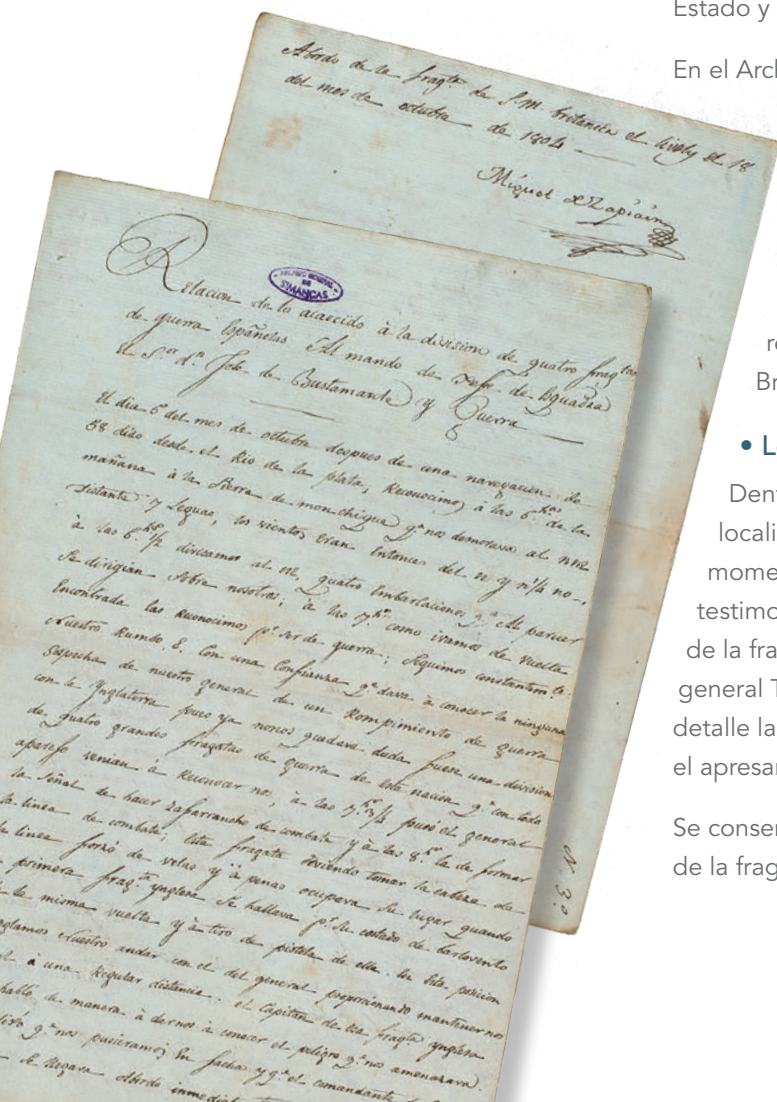 Abordo de la fragta de S.M. britanica el lively el 18
del mes de octubre de 1804
Miguel de Zapiain
ARCHIVO GENERAL
DE
SIMANCAS
Relacion de lo acaecido à la division de quatro fragtas
de guerra Españolas Al mando de Jefe de Esquadra
el Sor dn Jph de Bustamante y Guerra
El dia 5 del mes de octubre despues de una navegacion de
58 dias desde el Rio de la plata, Reconocimos à las 6 has de la
mañana à la Sierra de monchigua qe nos demorava al
distante 7 leguas, los vientos eran entonces del n y n¼ no,
à las 6 has ½ divisamos al quatro Embarlaciones qe Al parecer
Se dirigian Sobre nosotros, à las 7 hs como ivamos de vuelta
Encontrada las Reconocimos pr Ser de guerra; Seguimos constantemte
Nuestro Rumbo E. Con una Confianza qe dava à conocer la ninguna
Sospecha de nuestro general de un Rompimiento de guerra
con la Ynglaterra pues ya nonos quedava duda fuese una division
de quatro grandes fragatas de guerra de esta nacion qe con todo
aparejo venian à Reconocer nos, à las 7 hs 3/4 puso el general
la Señal de hacer Zafarrancho de combate y à las 8 hs la de formar
la linea de combate; Esta fragata deviendo tomar la cabeza de
la linea forzó de velas y à penas ocupava Su lugar quando
primera fragta ynglesa Se hallava pr Su costado de barlovento
de la misma vuelta y à tiro de pistola de ella. en Esta posicion
arreglamos Nuestro andar con el del general proporcionando mantenernos
à una Regular distancia. el Capitan de la fragta ynglesa
habló de manera à dernos à conocer el peligro qe nos amenazava
qe nos pusieramos En facha y qe el comandante
Se llegara abordo inmediatamente
N. 3.º
Estado y
En el Arch
re
Br
• L
Dent
locali
mome
testimo
de la fra
general T
detalle la
el apresar
Se conser
de la frag